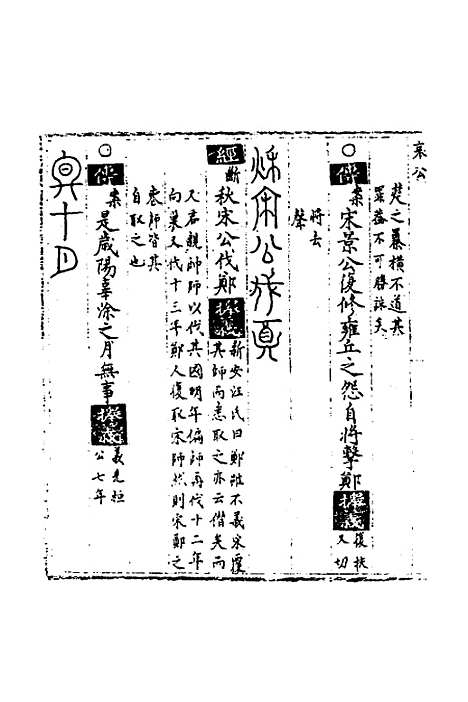 哀公
楚之暴橫不道其
罪蓋不可勝誅矣
○傳案宋景公復修雍丘之怨自將擊鄭擇義復扶
又切
將去
聲
秋宋公伐鄭
經斷秋宋公伐鄭擇義新安汪氏曰鄭雖不義宋覆
其師而悉取之亦云僭矣而
又君親帥師以伐其國明年偏師再伐十二年
向巢又伐十三年鄭人復取宋師然則宋鄭之
喪師皆其
自取之也
○傳案是歲陽辜涂之月無事擇義義見桓
公七年
冬十月